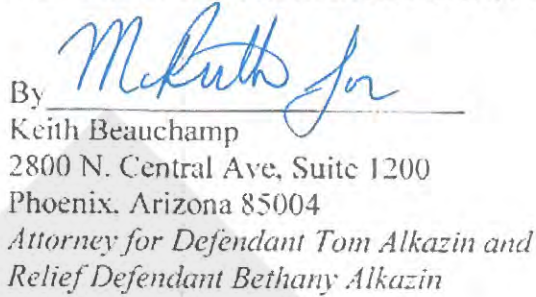 By for
Keith Beauchamp
2800 N. Central Ave, Suite 1200
Phoenix, Arizona 85004
Attorney for Defendant Tom Alkazin and
Relief Defendant Bethany Alkazin